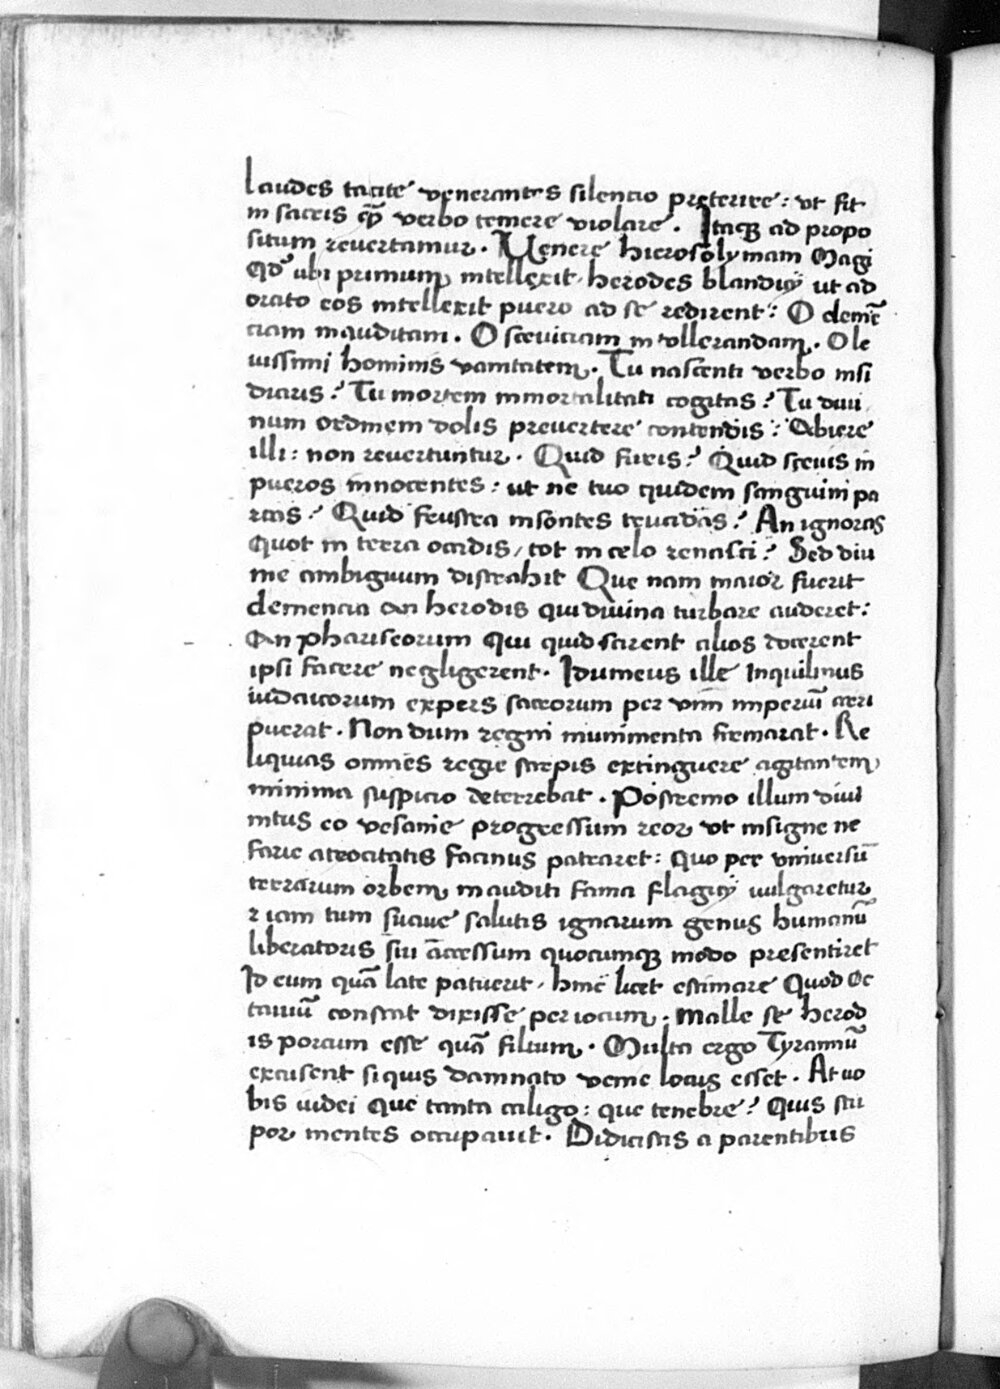 laudes tacite venerantes silencio preterire: vt sit
in sacris verbo temere violare. Itaq ad propo
situm revertamur. Venere hierosolymam Magi
Qd ubi primum intellexit herodes blandity ut ad
orato eos intellexit puero ad se redirent: O clemē
ciam inauditam. O seviciam intollerandam. O le
uissimi hominis vanitatem. Tu nascenti verbo insi
diaris? Tu mortem inmortalitati cogitas? Tu diui
num ordinem dolis prevertere contendis: Abiere
illi: non revertuntur. Quid furis? Quid sevis in
pueros innocentes: ut ne tuo quidem sanguini pa
rcas? Quid frustra insontes trucidas? An ignoras
Quot in terra occidis, tot in celo renasci? Sed diu
me ambiguum distrahit Que nam maior fuerit
clemencia an herodis qui divina turbare auderet:
An phariseorum Qui quid scirent alios docerent
ipsi facere negligerent. Idumeus ille Inquilinus
iudaicorum expers sacrorum per vim imperiū arri
puerat. Non dum regni munimenta firmarat. Re
liquias omnes regie stirpis extinguere agitantem
minima suspicio deterrebat. Postremo illum diui
nitus eo vesanie progressum reor vt insigne ne
farie atrocitatis facinus patraret: Quo per vniversū
terrarum orbem inauditi fama flagity uulgaretur
z iam tum suave salutis ignarum genus humanū
liberatoris sui accessum quocumq modo presentiret
Id eum quā late patuerit, hinc licet estimare Quod Oc
tauiū constat dixisse per iocum. Malle se herod
is porcum esse quā filium. Multa ergo Tyrannū
excusent si quis damnato venie locus esset. At uo
bis uidei Que tanta caligo: que tenebre? Quis stu
por mentes occupauit. Didicistis a parentibus